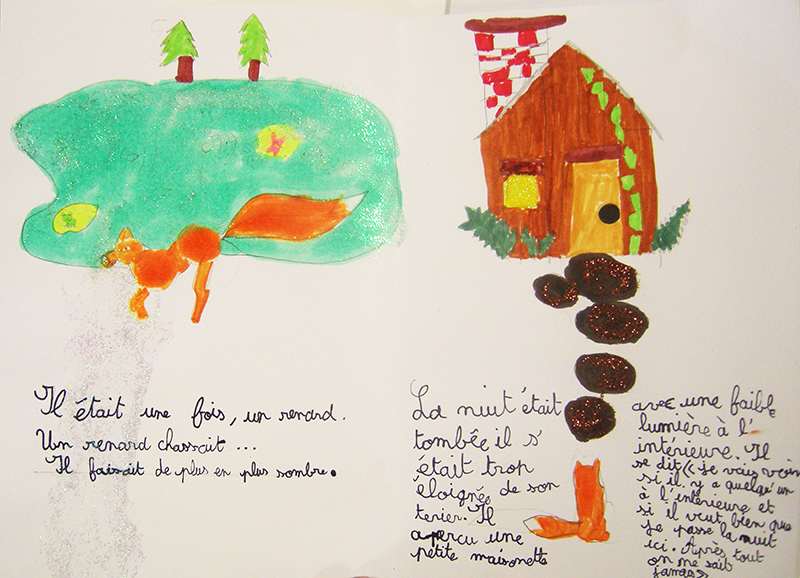 Il était une fois, un renard.
Un renard chassait ...
Il faisait de plus en plus sombre.
La niut était
tombée il s'
était trop
éloigné de son
terier. Il
apercu une
petite maisonette
avec une faible
lumière à l'
intérieure. Il
se dit « je vais voir
si il y a quelqu'un
à l'intérieure et
si il veut bien que
je passe la nuit
ici. Après tout
on ne sait
jamais